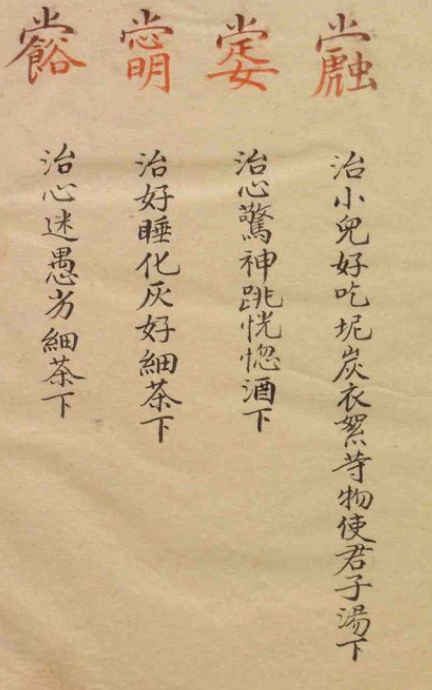 治小兒好吃坭炭衣絮等物使君子湯下
治心驚神跳恍惚酒下
治好睡化灰好細茶下
治心迷愚劣細茶下